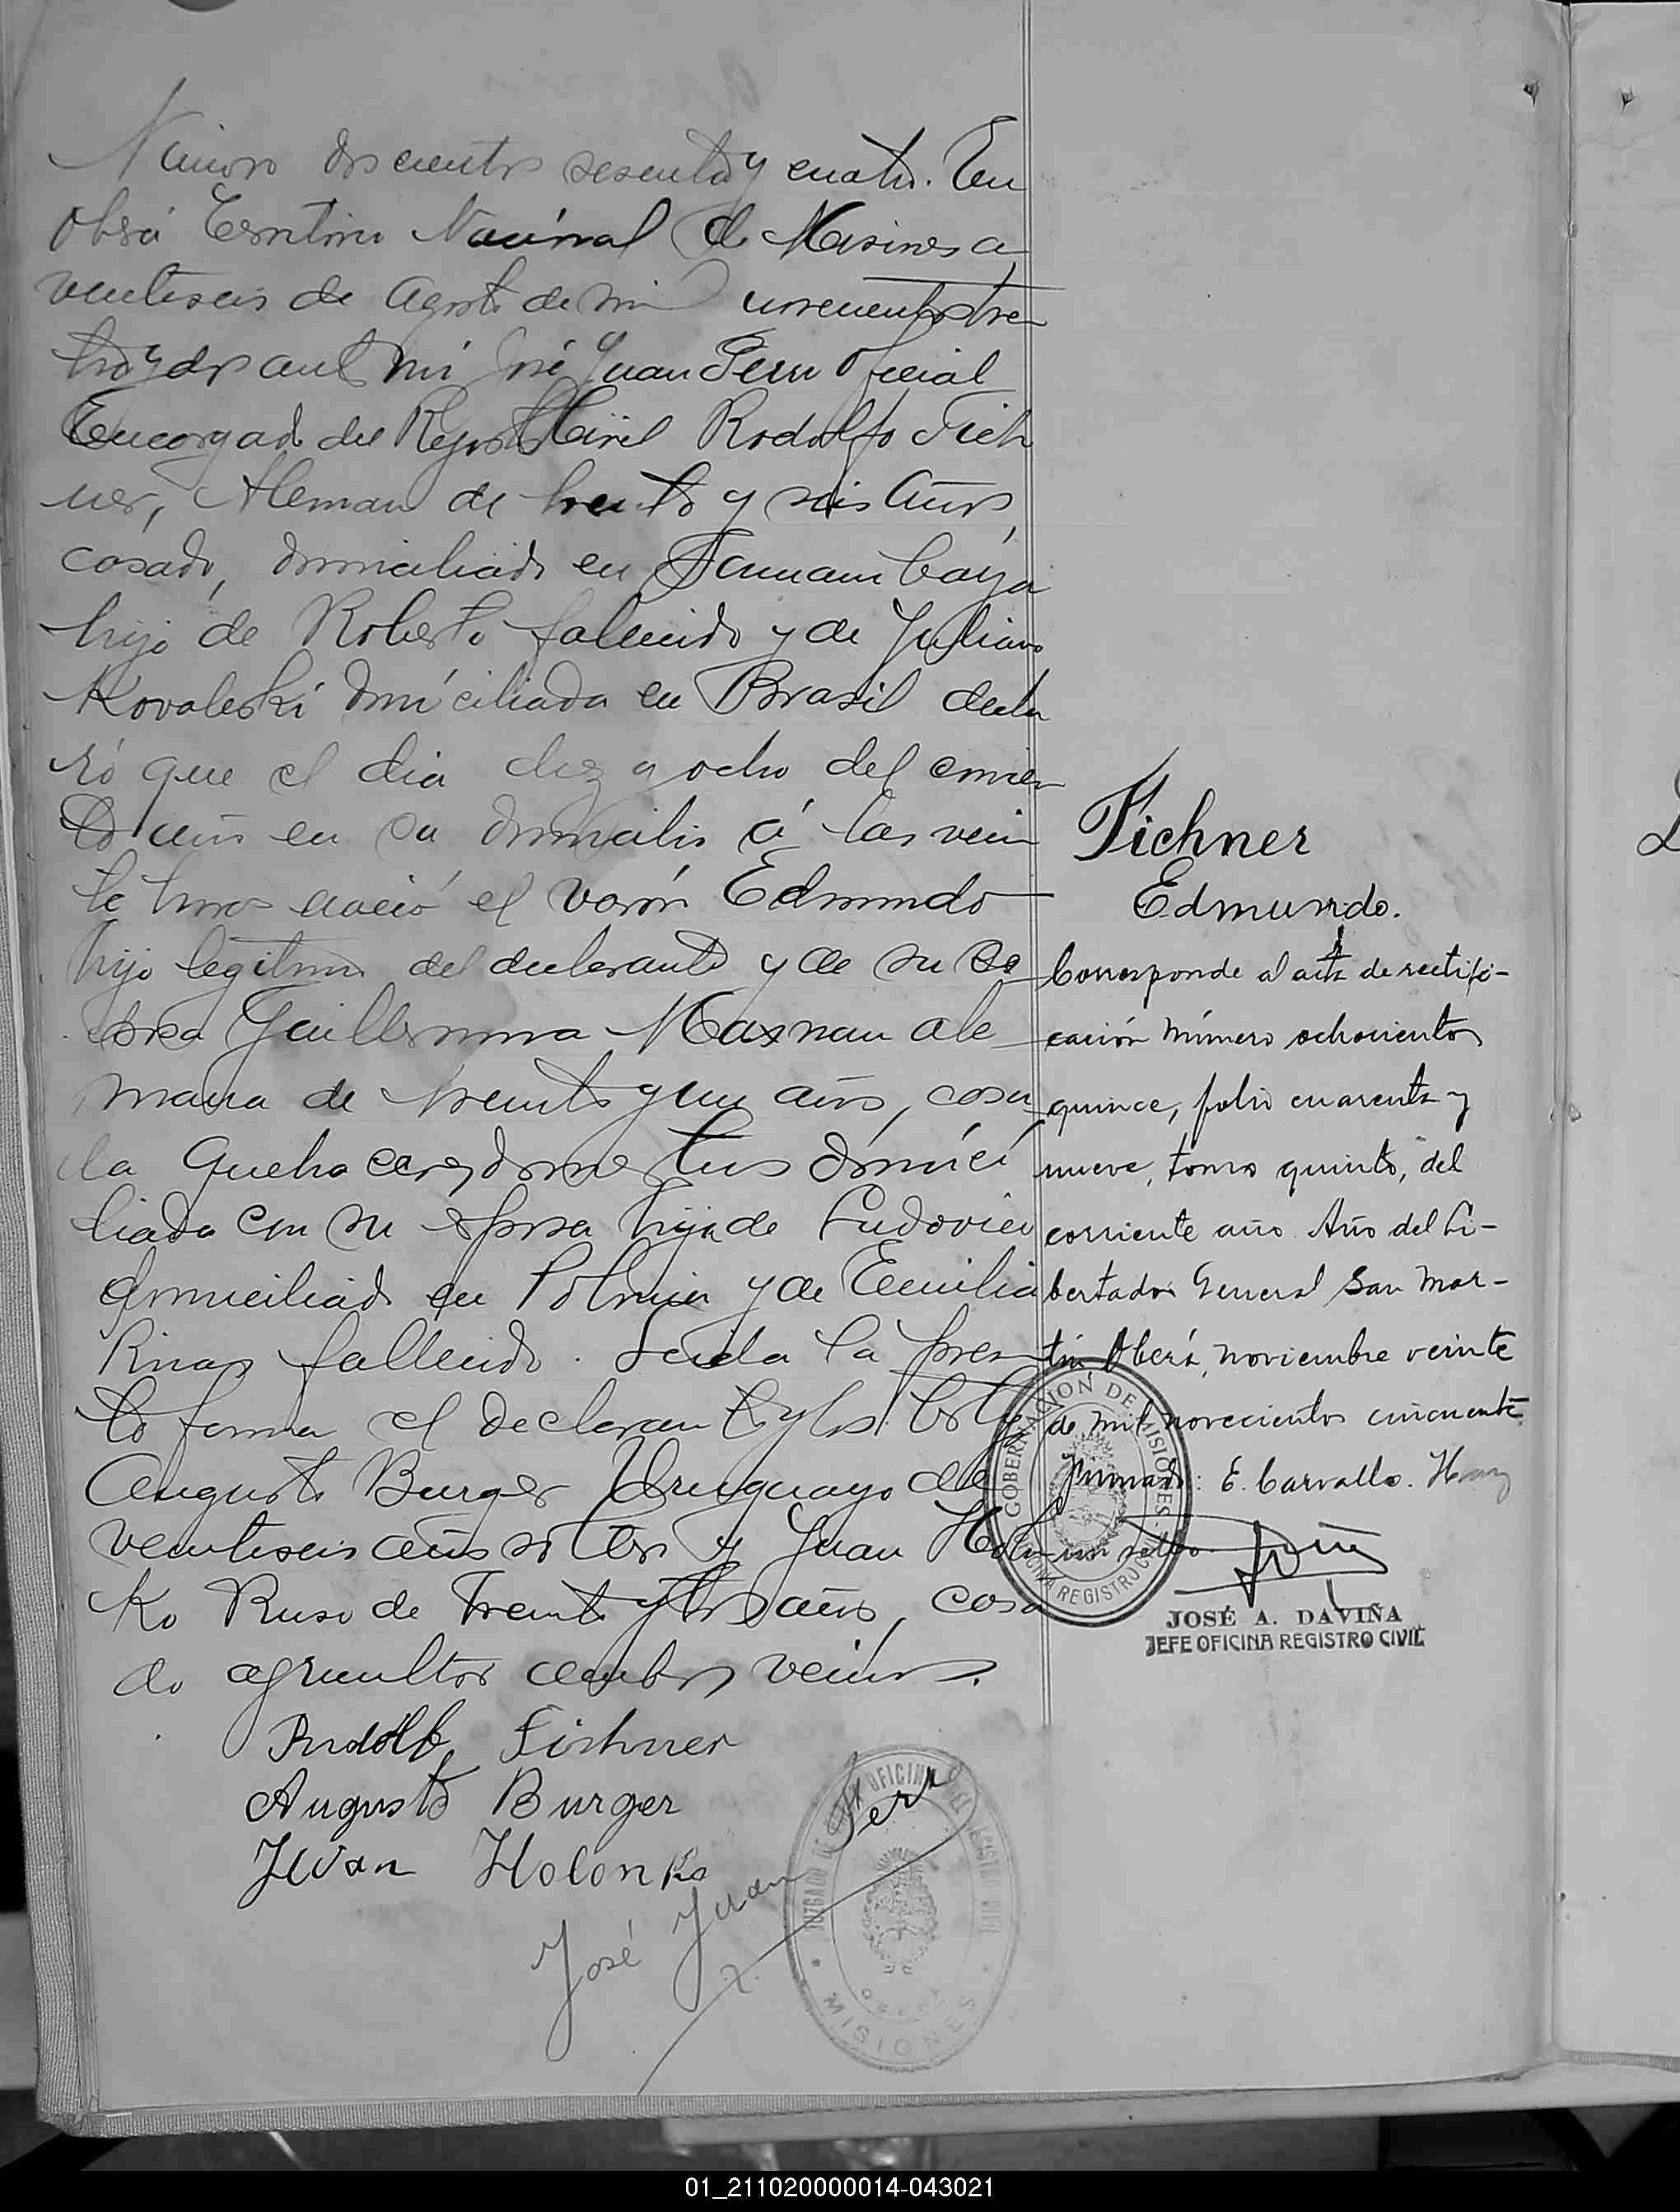 Número doscientos sesenta y cuatro. En
Oberá Territorio Nacional de Misiones a
veintiseis de Agosto de mil novecientos trein
ta y dos ante mi José Juan Pern Oficial
Encargado del Registro Civil Rodolfo Fich
ner, Aleman de treinta y seis años,
casado, domiciliado en
hijo de Roberto fallecido y de Juliana
Kovaleski domiciliada en Brasil decla
ró que el dia diez y ocho del
año en su domicilio á las vein
te horas nació el varón Edmundo
hijo legitimo del declarante y de su es
posa Guillermina Maxnau ale
mana de treinta y un años, casa
da quehaceres domesticos domici
liada con su esposo hija de Ludovico
domiciliado en Polonia y de Emilia
fallecido. Leida la presen
te firma el declarante y los
Augusto Burger Uruguayo de
veintiseis años soltero y Juan Holon
ko Ruso de treinta y tres años, casa
do agricultor ambos vecinos.
Rudolf Fichner
Augusto Burger
Juan Holonko
José Juan Pern
JUZGADO DE PAZ OFICINA DEL REGISTRO CIVIL
OBERA
MISIONES
Fichner
Edmundo.
Corresponde al acta de rectifi-
cación número ochocientos
quince, folio cuarenta y
nueve, tomo quinto, del
corriente año Año del Li-
bertador General San Mar-
tín Oberá, noviembre veinte
de mil novecientos cincuenta.
Firmado: E. Carvallo. Hay
un sello.
GOBERNACION DE MISIONES
OFICINA REGISTRO CIVIL
JOSÉ A. DAVIÑA
JEFE OFICINA REGISTRO CIVIL
01_211020000014-043021